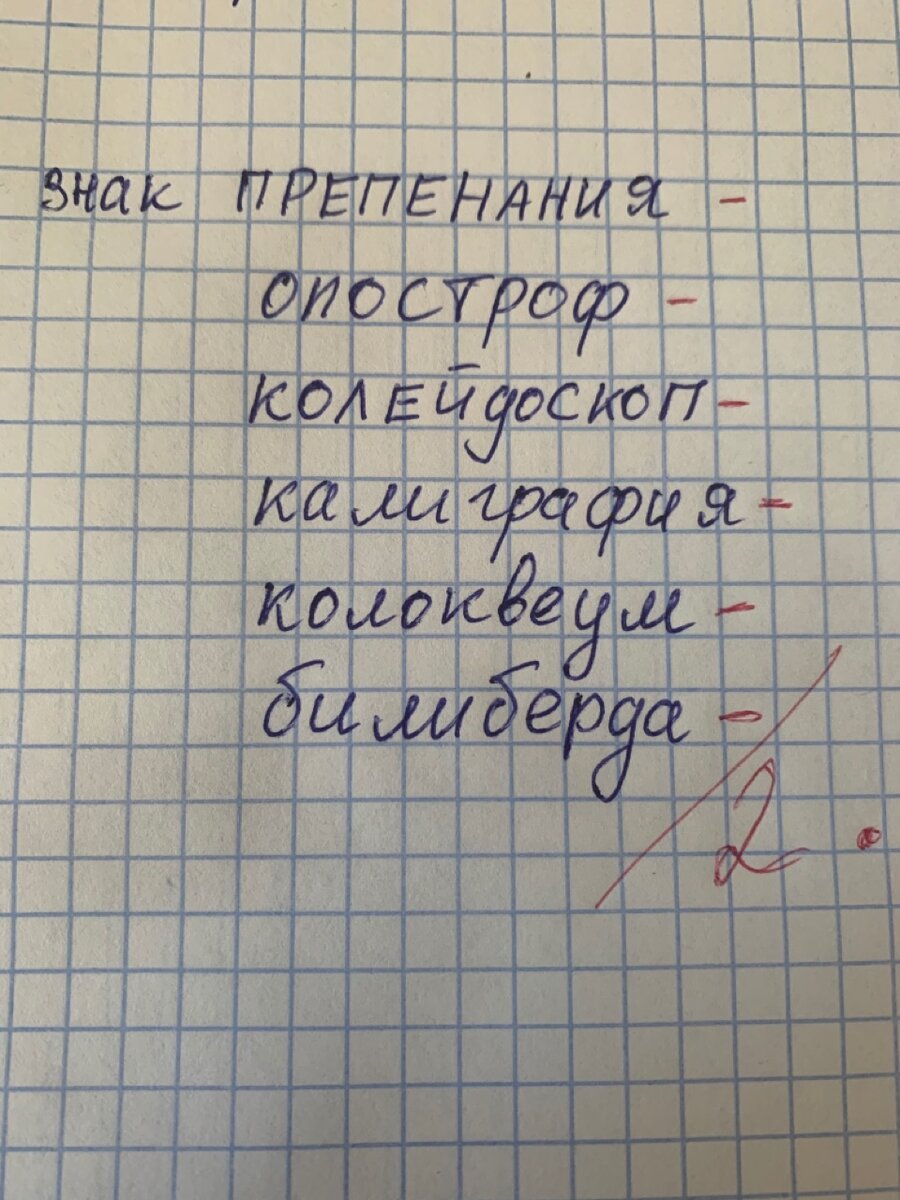 знак ПРЕПЕНАНИЯ -
опостроф -
колейдоскоп -
калиграфия -
колоквеум -
билиберда -
2.